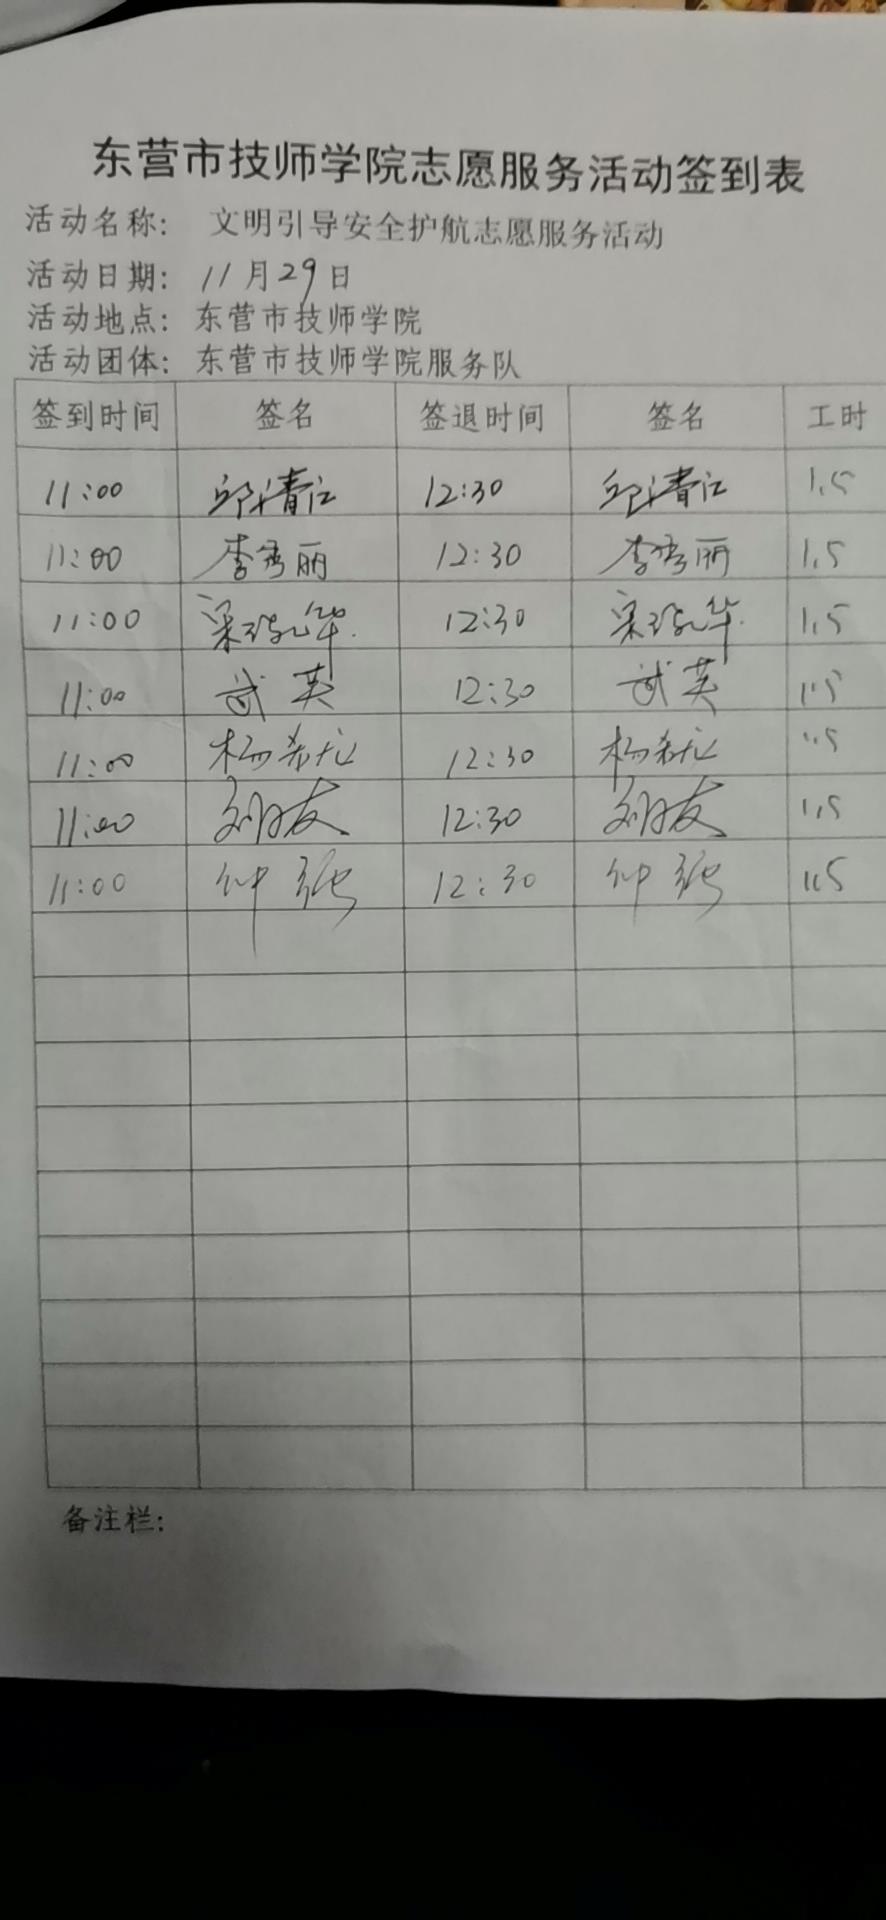 东营市技师学院志愿服务活动签到表
活动名称: 文明引导安全护航志愿服务活动
活动日期: 11月29日
活动地点: 东营市技师学院
活动团体: 东营市技师学院服务队
签到时间 签名 签退时间 签名 工时
11:00 邱清江 12:30 邱清江 1.5
11:00 李秀丽 12:30 李秀丽 1.5
11:00 12:30 1.5
11:00 武英 12:30 武英 1.5
11:00 12:30 1.5
11:00 刘友 12:30 刘友 1.5
11:00 钟强 12:30 钟强 1.5
备注栏: